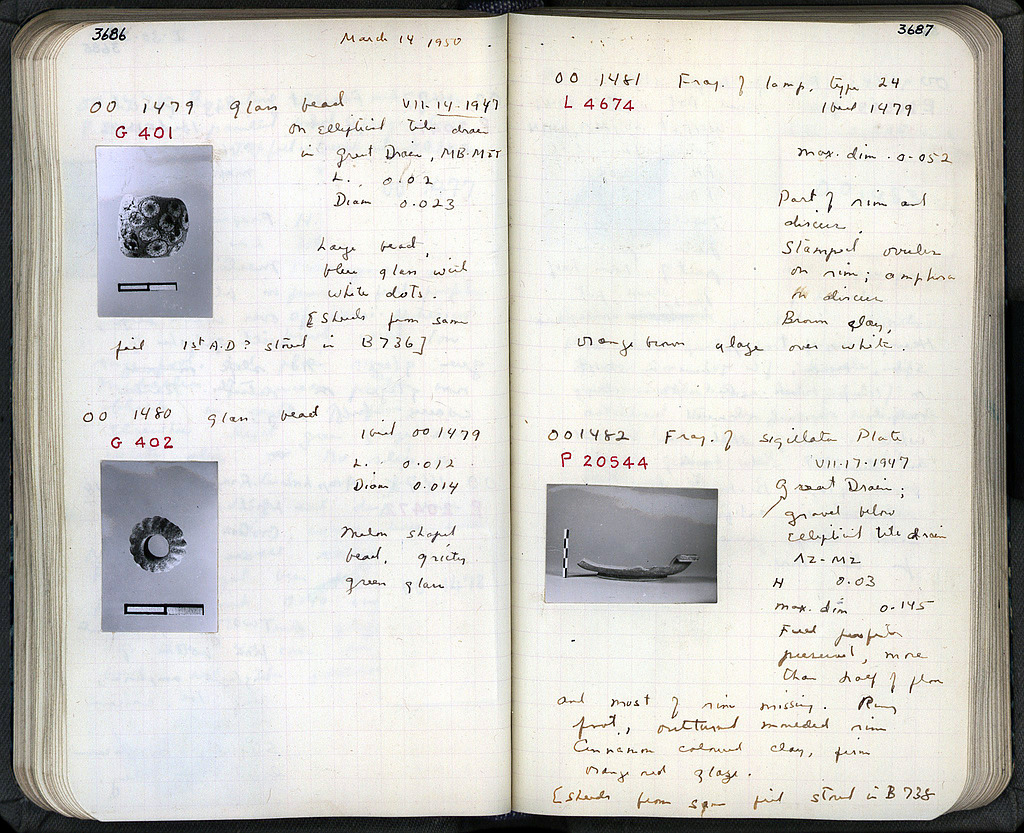 3686
March 14 1950
OO 1479 glass bead VII-14-1947
G 401
on elliptical tile drain
in Great Drain, MB-MΣT
L. 0.02
Diam 0.023
Large bead,
blue glass with
white dots.
[Sherds from same
fill 1st A.D? stored in B 736]
OO 1480 glass bead
G 402
ibid OO 1479
L. 0.012
Diam 0.014
Melon shaped
bead, gritty
green glass
3687
OO 1481 Frag. of lamp, type 24
L 4674
ibid 1479
max. dim. 0.052
Part of rim and
discus.
Stamped ovules
on rim; amphora
on discus
Brown clay,
orange brown glaze over white.
OO 1482 Frag. of sigillata Plate
P 20544
VII-17-1947
Great Drain;
gravel below
elliptical tile drain
H 0.03
max. dim 0.145
Full profile
preserved, more
than half of floor
and most of rim missing. Ring
foot, outturned moulded rim
Cinnamon coloured clay, firm
orange red glaze.
[Sherds from same fill stored in B 738